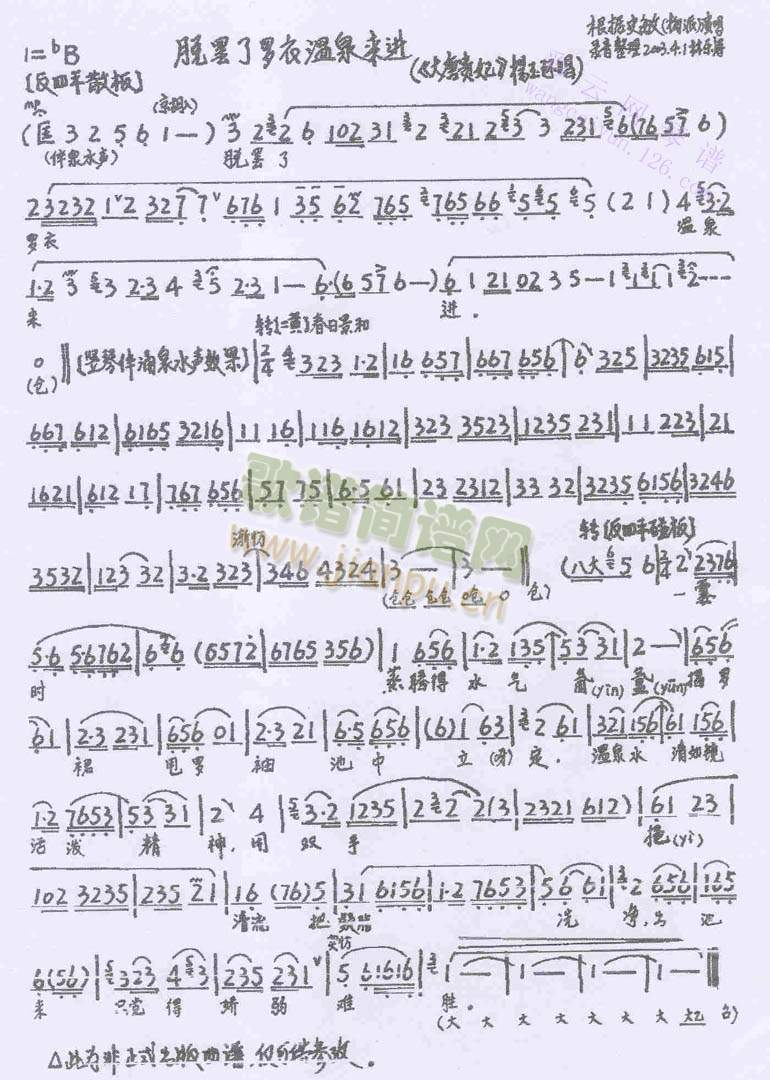 脱罢了罗衣温泉来进
(《大唐贵妃》杨玉环唱)
根据史敏(梅派)演唱
录音整理2003.4.1林乐舞
1=bB
[反四平散板]
(匡 3 2 5 6 1 —) 3 2 2 6 102 31 2 3 21 2 5 3 231 6(76 57 6)
(伴泉水声) 脱罢了
23232 1 2 32 7 7 676 1 35 62 765 765 66 5 5 5 (2 1) 4 3·2
罗衣 温泉
1·2 3 3 2·3 4 5 2·3 1— 6·(6 57 6—) 6 1 21 02 3 5 — 1 1 1 2---
来 进.
转[二黄]春日景和
0 ‖ [竖琴伴涌泉水声效果] | 2/4 323 1·2 | 16 657 | 667 656 | 6 325 | 3235 615 |
(仓)
667 612 | 6165 3216 | 11 16 | 116 1612 | 323 3523 | 1235 231 | 11 223 | 21
1621 | 612 17 | 767 656 | 57 75 | 6·5 61 | 23 2312 | 33 32 | 3235 6156 | 3246
渐慢 转[反四平碰板]
3532 | 123 32 | 3·2 323 | 346 4324 | 3 — | 3 — ‖ (八大 5 6 | 2/4 2 2376 |
(仓仓 仓仓 0仓 0 仓) 一霎
5·6 56762 | 6 6 (6572 | 6765 356) | 1 656 | 1·2 135 | 53 31 | 2 — | 656
时 蒸腾得 水 气 氤(yīn) 氲(yūn) 揭 罗
61 | 2·3 231 | 656 01 | 2·3 21 | 6·5 656 | (6) 1 63 | 2 61 | 321 156 | 61 156 |
裙 甩罗 袖 池 中 立(呀) 定. 温泉水 清如镜
1·2 7653 | 53 31 | 2 4 | 3·2 1235 | 2 2 2(3 | 2321 612) | 61 23 |
活泼 精 神,用 双 手 挹(yì)
102 3235 | 235 21 | 16 (76) 5 | 31 6156 | 1·2 7653 | 5 6 61 | 2 656 | 165
清流 把 凝脂 洗 净,出 池
6(56) | 323 4 3 | 235 231 | 5 6616 | 1 — | 1 — | 1 — | 1 — | 1 — ‖
来 只觉 得 娇 弱 难 胜.
(大 大 大 大 大 大 大 台)
△此为非正式出版曲谱,仅供参考.
彩云网琴谱
wangcaiyun.126.com
歌谱简谱网
www.jianpu.cn